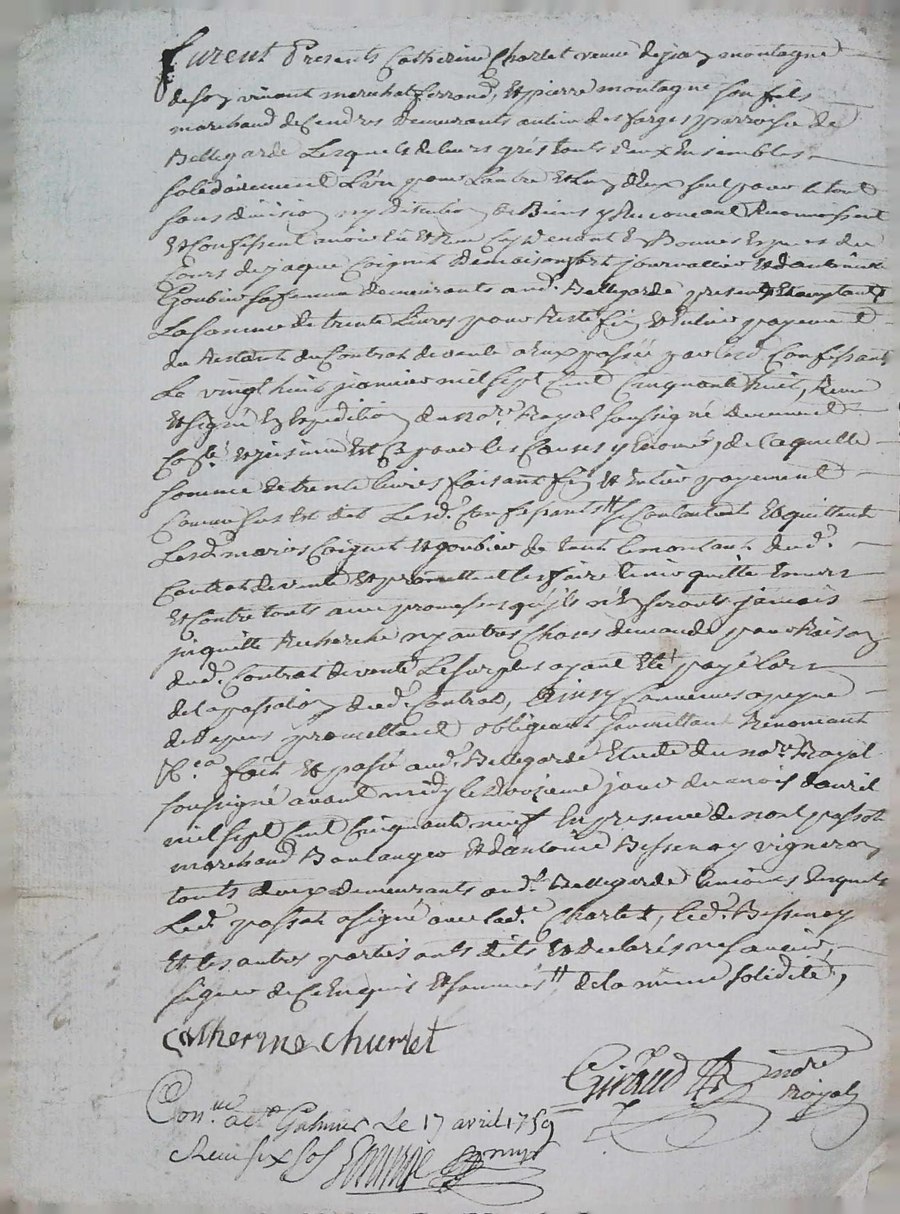 furent Presents Catherine Charlet veuve de jean montagne
de son vivant marechal ferrand, et pierre montagne son fils
marchand de Cendres demeurants au lieu des farges parroisse de
Bellegarde Lesquels de leurs grés touts deux Ensembles
solidairement L'un pour L'autre et Lun d'Eux seul pour le tout
sans division ny discution de Biens y Renoncant Reconnoissent
et Confessent avoir Eu et Receu Cy devant En Bonnes Especes du
Cours de jaque Coignet journallier et d'antoinette
Goubier sa femme demeurants aud. Bellegarde presents et acceptants
La somme de trente Livres pour Reste fin et Entier payement
du Restant du Contrat de vente a Eux passée par lesd. Confessants
Le vingt huit janvier mil sept Cent Cinquante huit, Receu
et signé En Expedition du nore. Royal soussigné deuement
Collé. et insinué et Ce pour les Causes y Enoncés, de Laquelle
somme de trente livres faisant fin et Entier payement
Comme sus est dit Lesd. Confessants se Contentent et quittent
Lesd. maries Coignet et goubier de tout le montant dud.
Contrat de vente et promettent les faire tenir quitte Envers
et Contre touts avec promesse qu'ils n'En seronts jamais
inquiette Recherche ny autres Choses demandé pour Raison
dud. Contrat de vente Le surplus ayant Eté payé Lors
de la passation dud. Contrat, Ainsy Convenus a peyne
de depens promettant obligeant soumettant Renoncant
&c.a fait et passé aud. Bellegarde Etude du nore. Royal
soussigné avant midy le jour du mois d'avril
mil sept Cent Cinquante neuf En presence de passot
marchand Boulanger et d'antoine Bessenay vigneron
touts deux demeurants aud. Bellegarde temoins Enquis
Led. passot a signé avec lad. Charlet, led. Bessenay
et les autres parties onts dits et declarés ne scavoir
signer de Ce Enquis et sommés de la même solidité,
catherine churlet
Giraud nore
Royal
Con.lle a st Galmier Le 17 avril 1759
Receu six sols